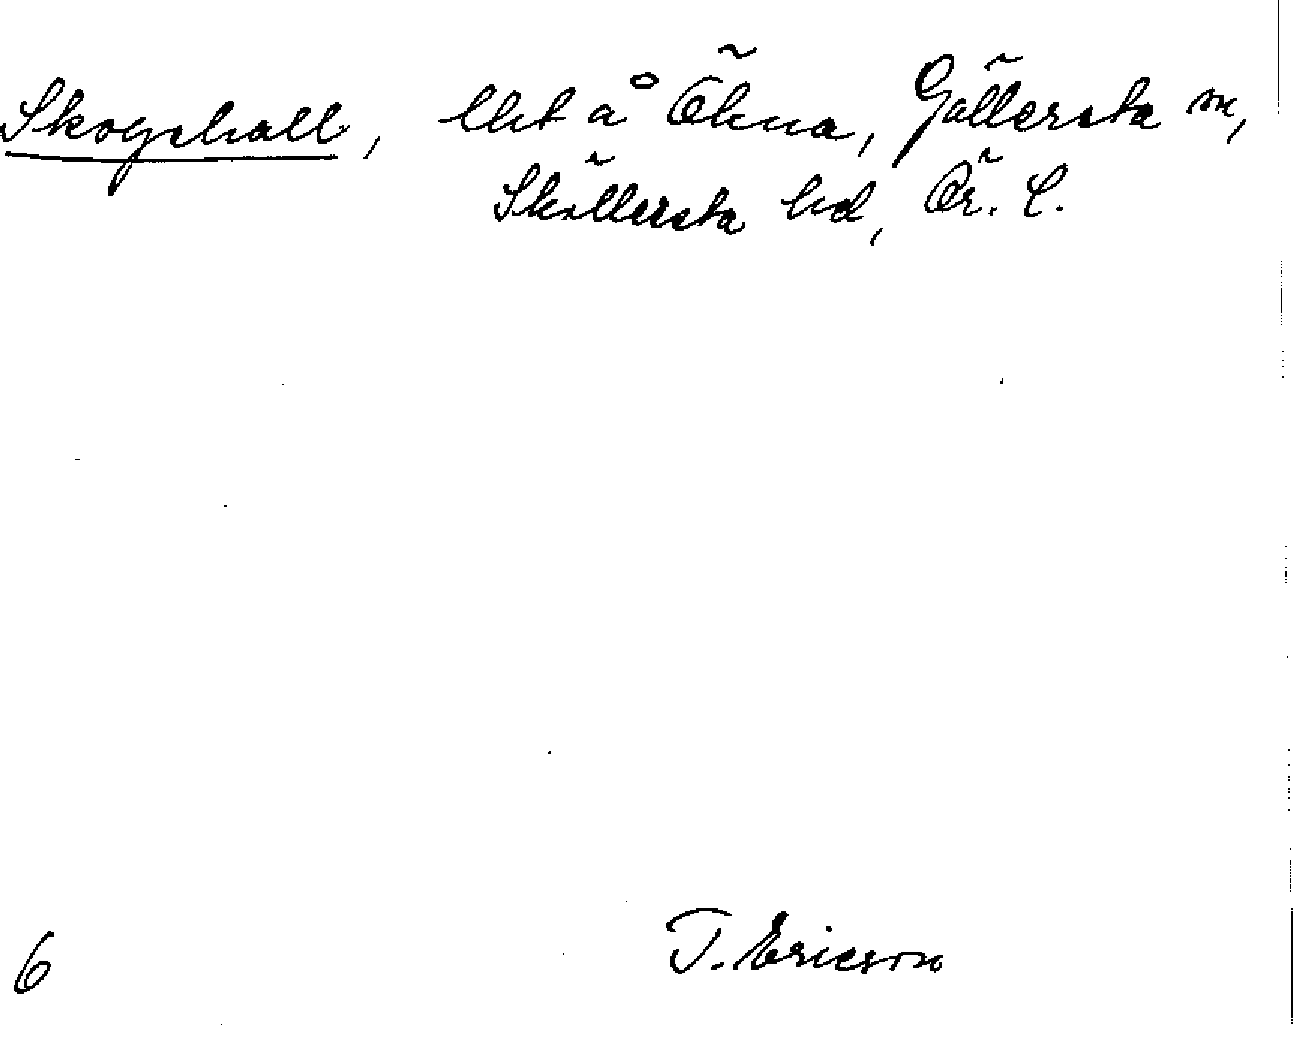 Skogshall, lht åÖkna, Gällersta sn,
Sköllersta hd, Ör. l.
6
T. Ericson